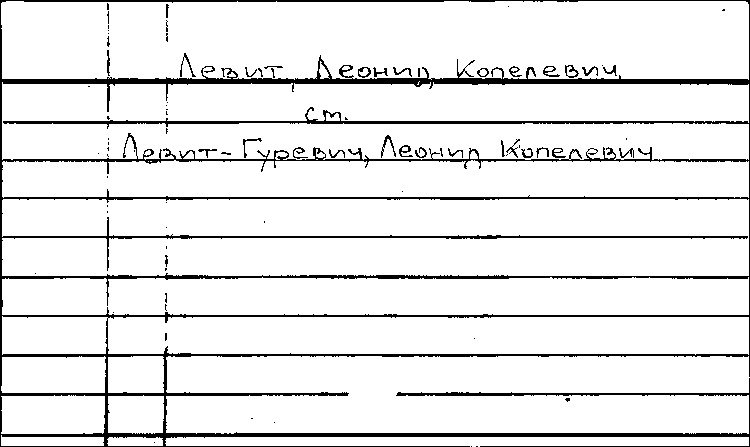 Левит, Леонид Копелевич
см.
Левит-Гуревич, Леонид Копелевич